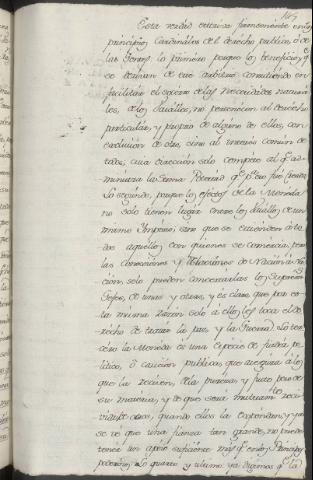 Esta verdad estriva firmemente en los
principios Cardinales del derecho publico, ò de
las Gentes, lo primero porque los beneficios, q.e
se derivan de este arbitrio consistiendo en
facilitar el socorro de las necesidades
de los Pueblos, no pertenecen al derecho
particular, y propio de alguno de ellos, con
exclusion de otro, sino al interes comun de
todos, cuia direccion solo compete al q.e ad-
ministra la Suma Potestad
Lo segundo, porque los efectos de la Moneda
no solo tienen lugar entre los Pueblos de un
mismo Ymperio, sino que se extienden á to-
dos aquellos con quienes se comercia, pero
las conexiones y relaciones de Nacion á Na-
cion, solo pueden concertarlas los Supremos
Gefes, de unas y otras, y es claro, que por es-
ta misma razon solo a ellos les toca el de-
recho de tratar la paz, y la Guerra. Lo ter-
cero la Moneda es una especie de fianza pu-
blica, ò caucion publica, que asegura à los
que la reciven, la pureza, y justo peso de
su materia, y de que será
quando ellos la expendan, y ya
se vé que una fianza tan grande, no puede
tener un apoio suficiente mas q.e en los Principes
poderosos. Lo quarto y ultimo ya diximos q.e la